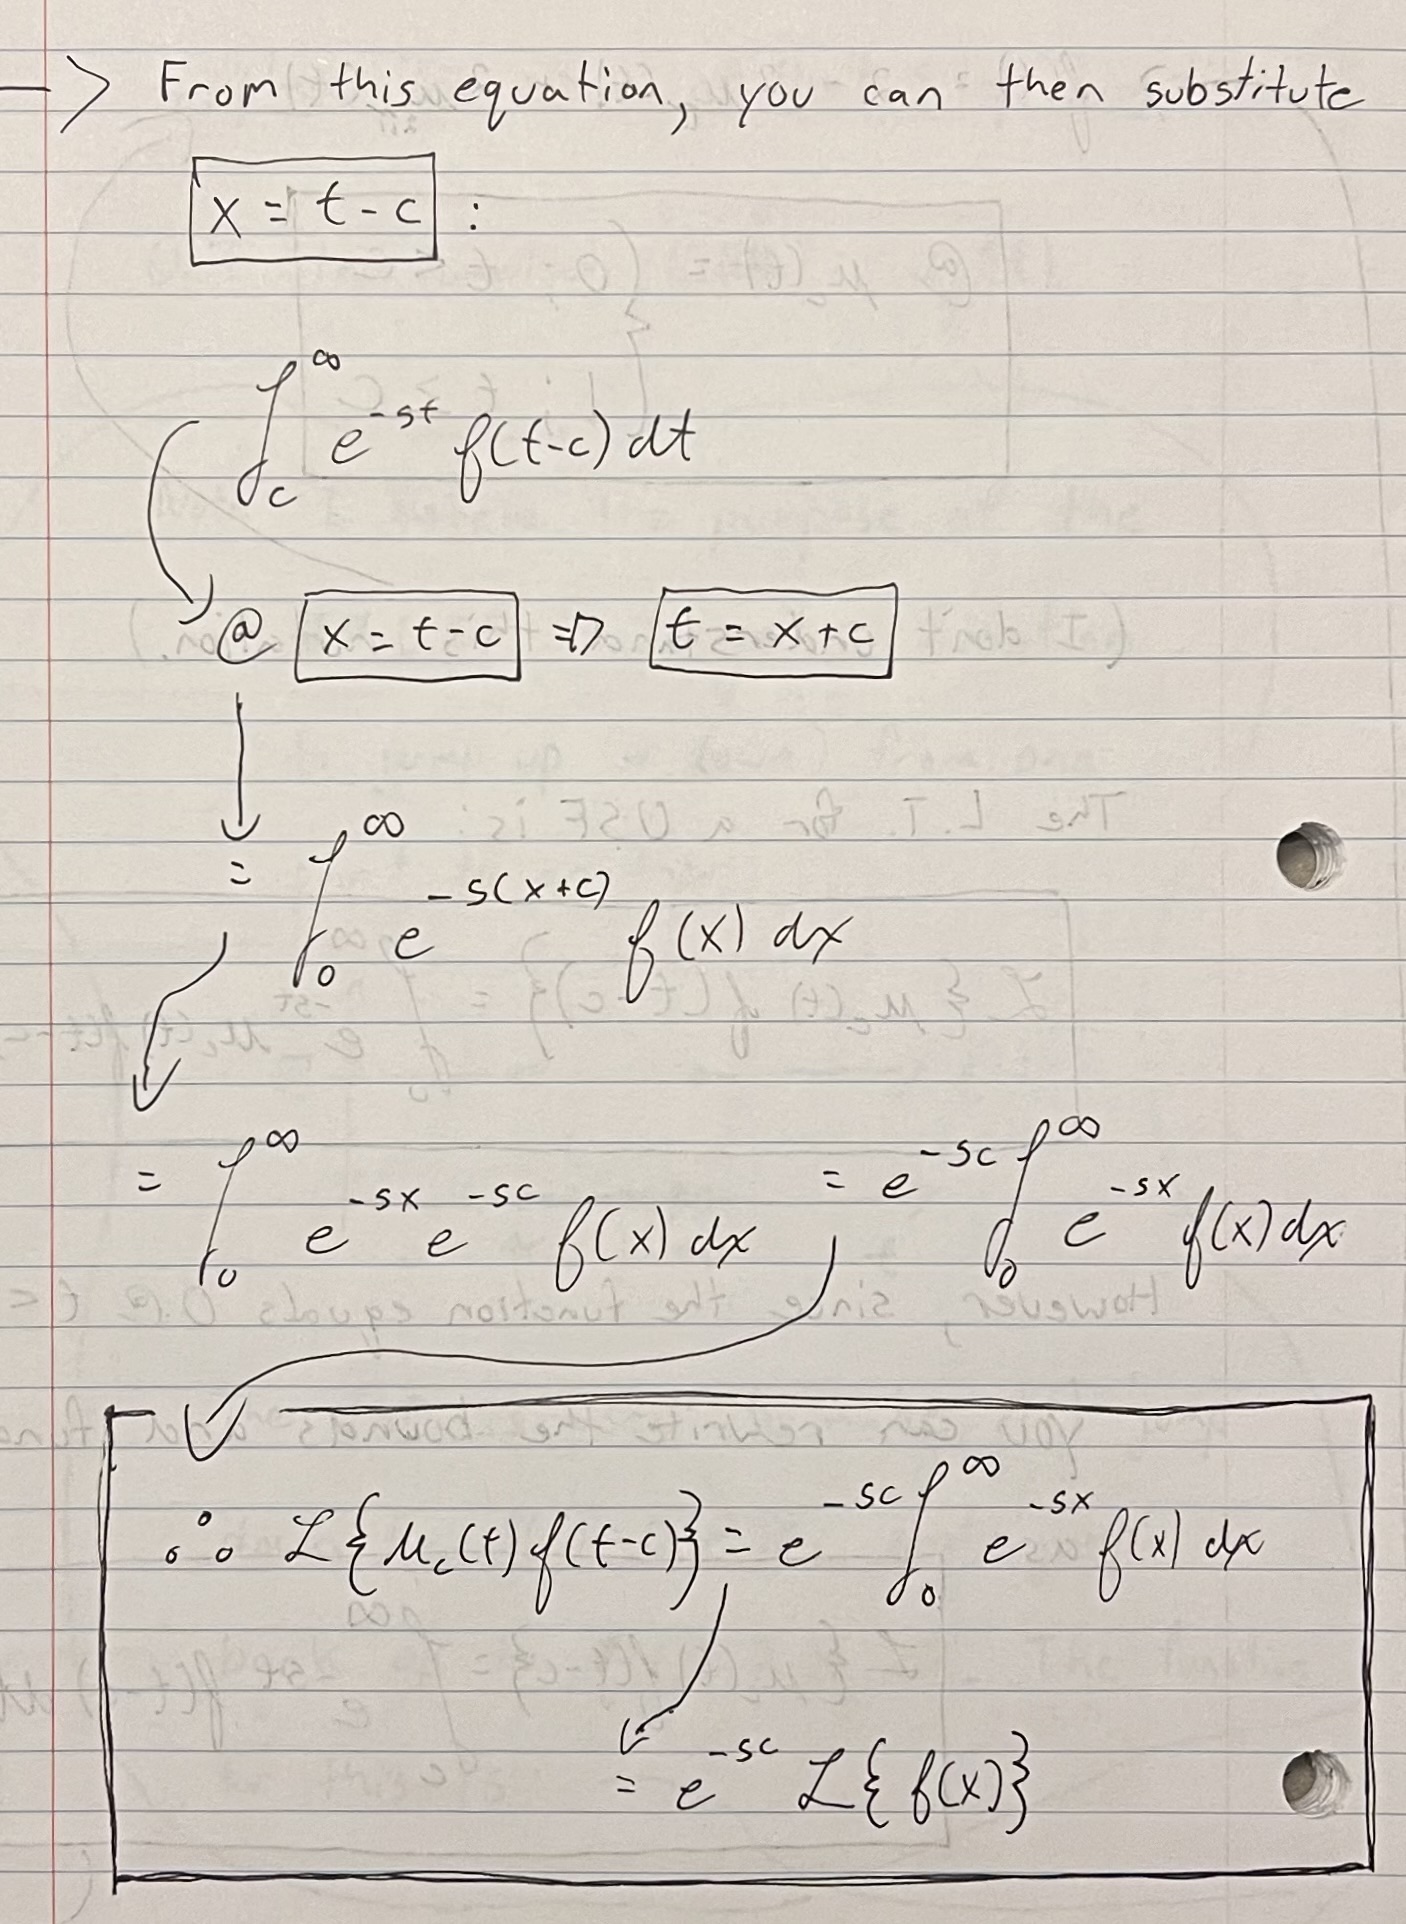 —> From this equation, you can then substitute
x = t - c :
∫_c^∞ e^{-st} f(t-c) dt
@ x = t - c => t = x + c
= ∫_0^∞ e^{-s(x+c)} f(x) dx
= ∫_0^∞ e^{-sx} e^{-sc} f(x) dx = e^{-sc} ∫_0^∞ e^{-sx} f(x) dx
∴ ℒ{μ_c(t) f(t-c)} = e^{-sc} ∫_0^∞ e^{-sx} f(x) dx
= e^{-sc} ℒ{f(x)}